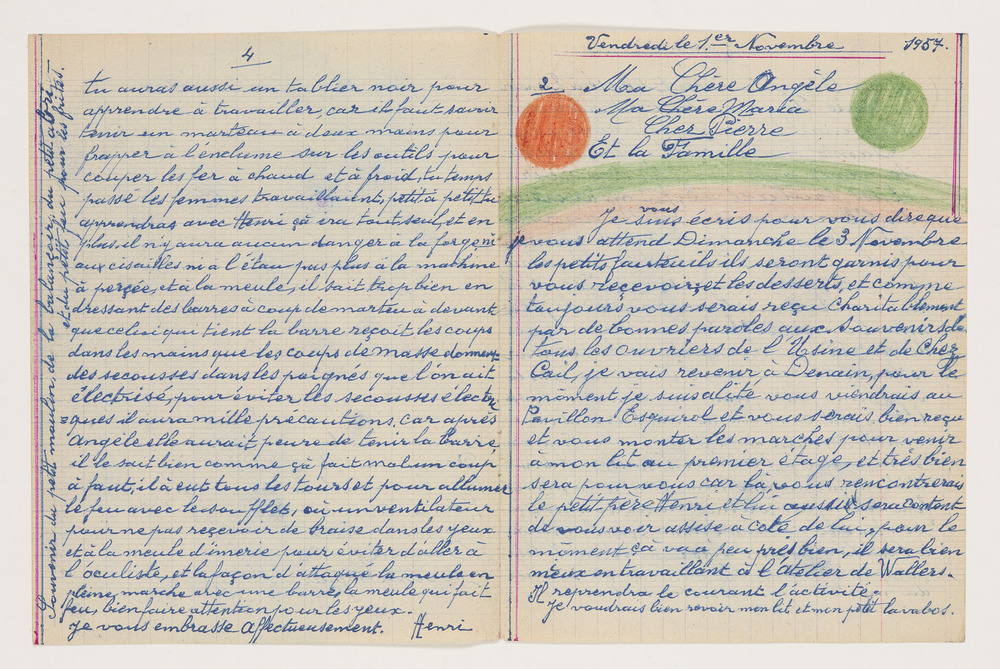 4
tu auras aussi un tablier noir pour
apprendre à travailler, car il faut savoir
tenir un marteau à deux mains pour
frapper à l'enclume sur les outils pour
couper les fer à chaud et à froid, tu temps
passé les femmes travaillaient, petit à petit tu
apprendras avec Henri çà ira tout seul, et en
plus il n'y aura aucun danger à la forge ni
aux cisailles ni a l'étau pas plus à la machine
à perçée, et à la meule, il sait trop bien en
dressant des barres à coup de marteu à devant
que celui qui tient la barre reçoit les coups
dans les mains que les coups de masse donnent
des secousses dans les poignés que l'on ait
électrisé, pour éviter les secousses électri
=ques il aura mille précautions, car après
Angèle elle aurait peure de tenir la barre
il le sait bien comme çà fait mal un coup
à faut, il à eut tous les tours et pour allumer
le feu avec le soufflet, où un ventilateur
pour ne pas reçevoir de braise dans les yeux
et à la meule d'imerie pour éviter d'aller à
l'oculiste, et la façon d'attaqué la meule en
pleine marche avec une barre, la meule qui fait
feu, bien faire attention pour les yeux.
Je vous embrasse affectueusement. Henri
Souvenir du petit moulin, de la balançoir, du petit abri
et du petit feu pour les frites.
Vendredi le 1.er Novembre 1957.
2 Ma Chère Angèle
Ma Chère Maria
Cher Pierre
Et la Famille
Je vous suis écris pour vous dire que
je vous attend Dimanche le 3 Novembre
les petits fauteuils ils seront garnis pour
vous reçevoir, et les desserts, et comme
toujours vous serais reçu charitablement
par de bonnes paroles aux souvenirs de
tous les ouvriers de l'Usine et de Chez
Cail, je vais revenir à Denain, pour le
moment je suis alité vous viendrais au
Pavillon Esquirol et vous serais bien reçu
et vous monter les marches pour venir
à mon lit au premier étage, et très bien
sera pour vous car là, vous rencontrerais
le petit père Henri et lui aussi il sera content
de vous voir assise à coté de lui, pour le
moment çà va à peu près bien, il sera bien
mieux en travaillant à l'atelier de Wallers.
Il reprendra le courant l'activité.
Je voudrais bien revoir mon lit et mon petit lavabos.